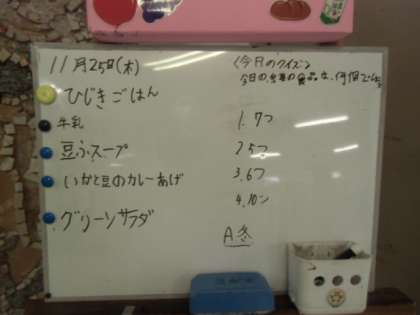 11月25日(木)
ひじきごはん
牛乳
豆ふスープ
いかと豆のカレーあげ
グリーンサラダ
〈今日のクイズ〉
今日の
食品は、何個でしょう
1.7つ
2.5つ
3.6つ
4.10こ
A.